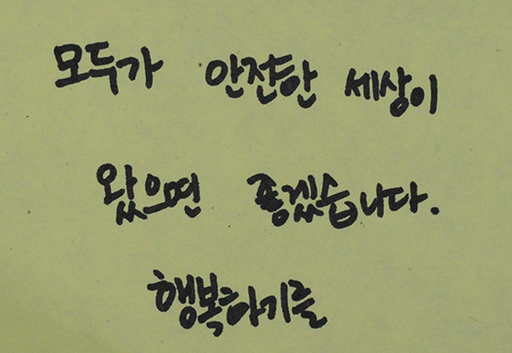 모두가 안전한 세상이
왔으면 좋겠습니다.
행복하기를